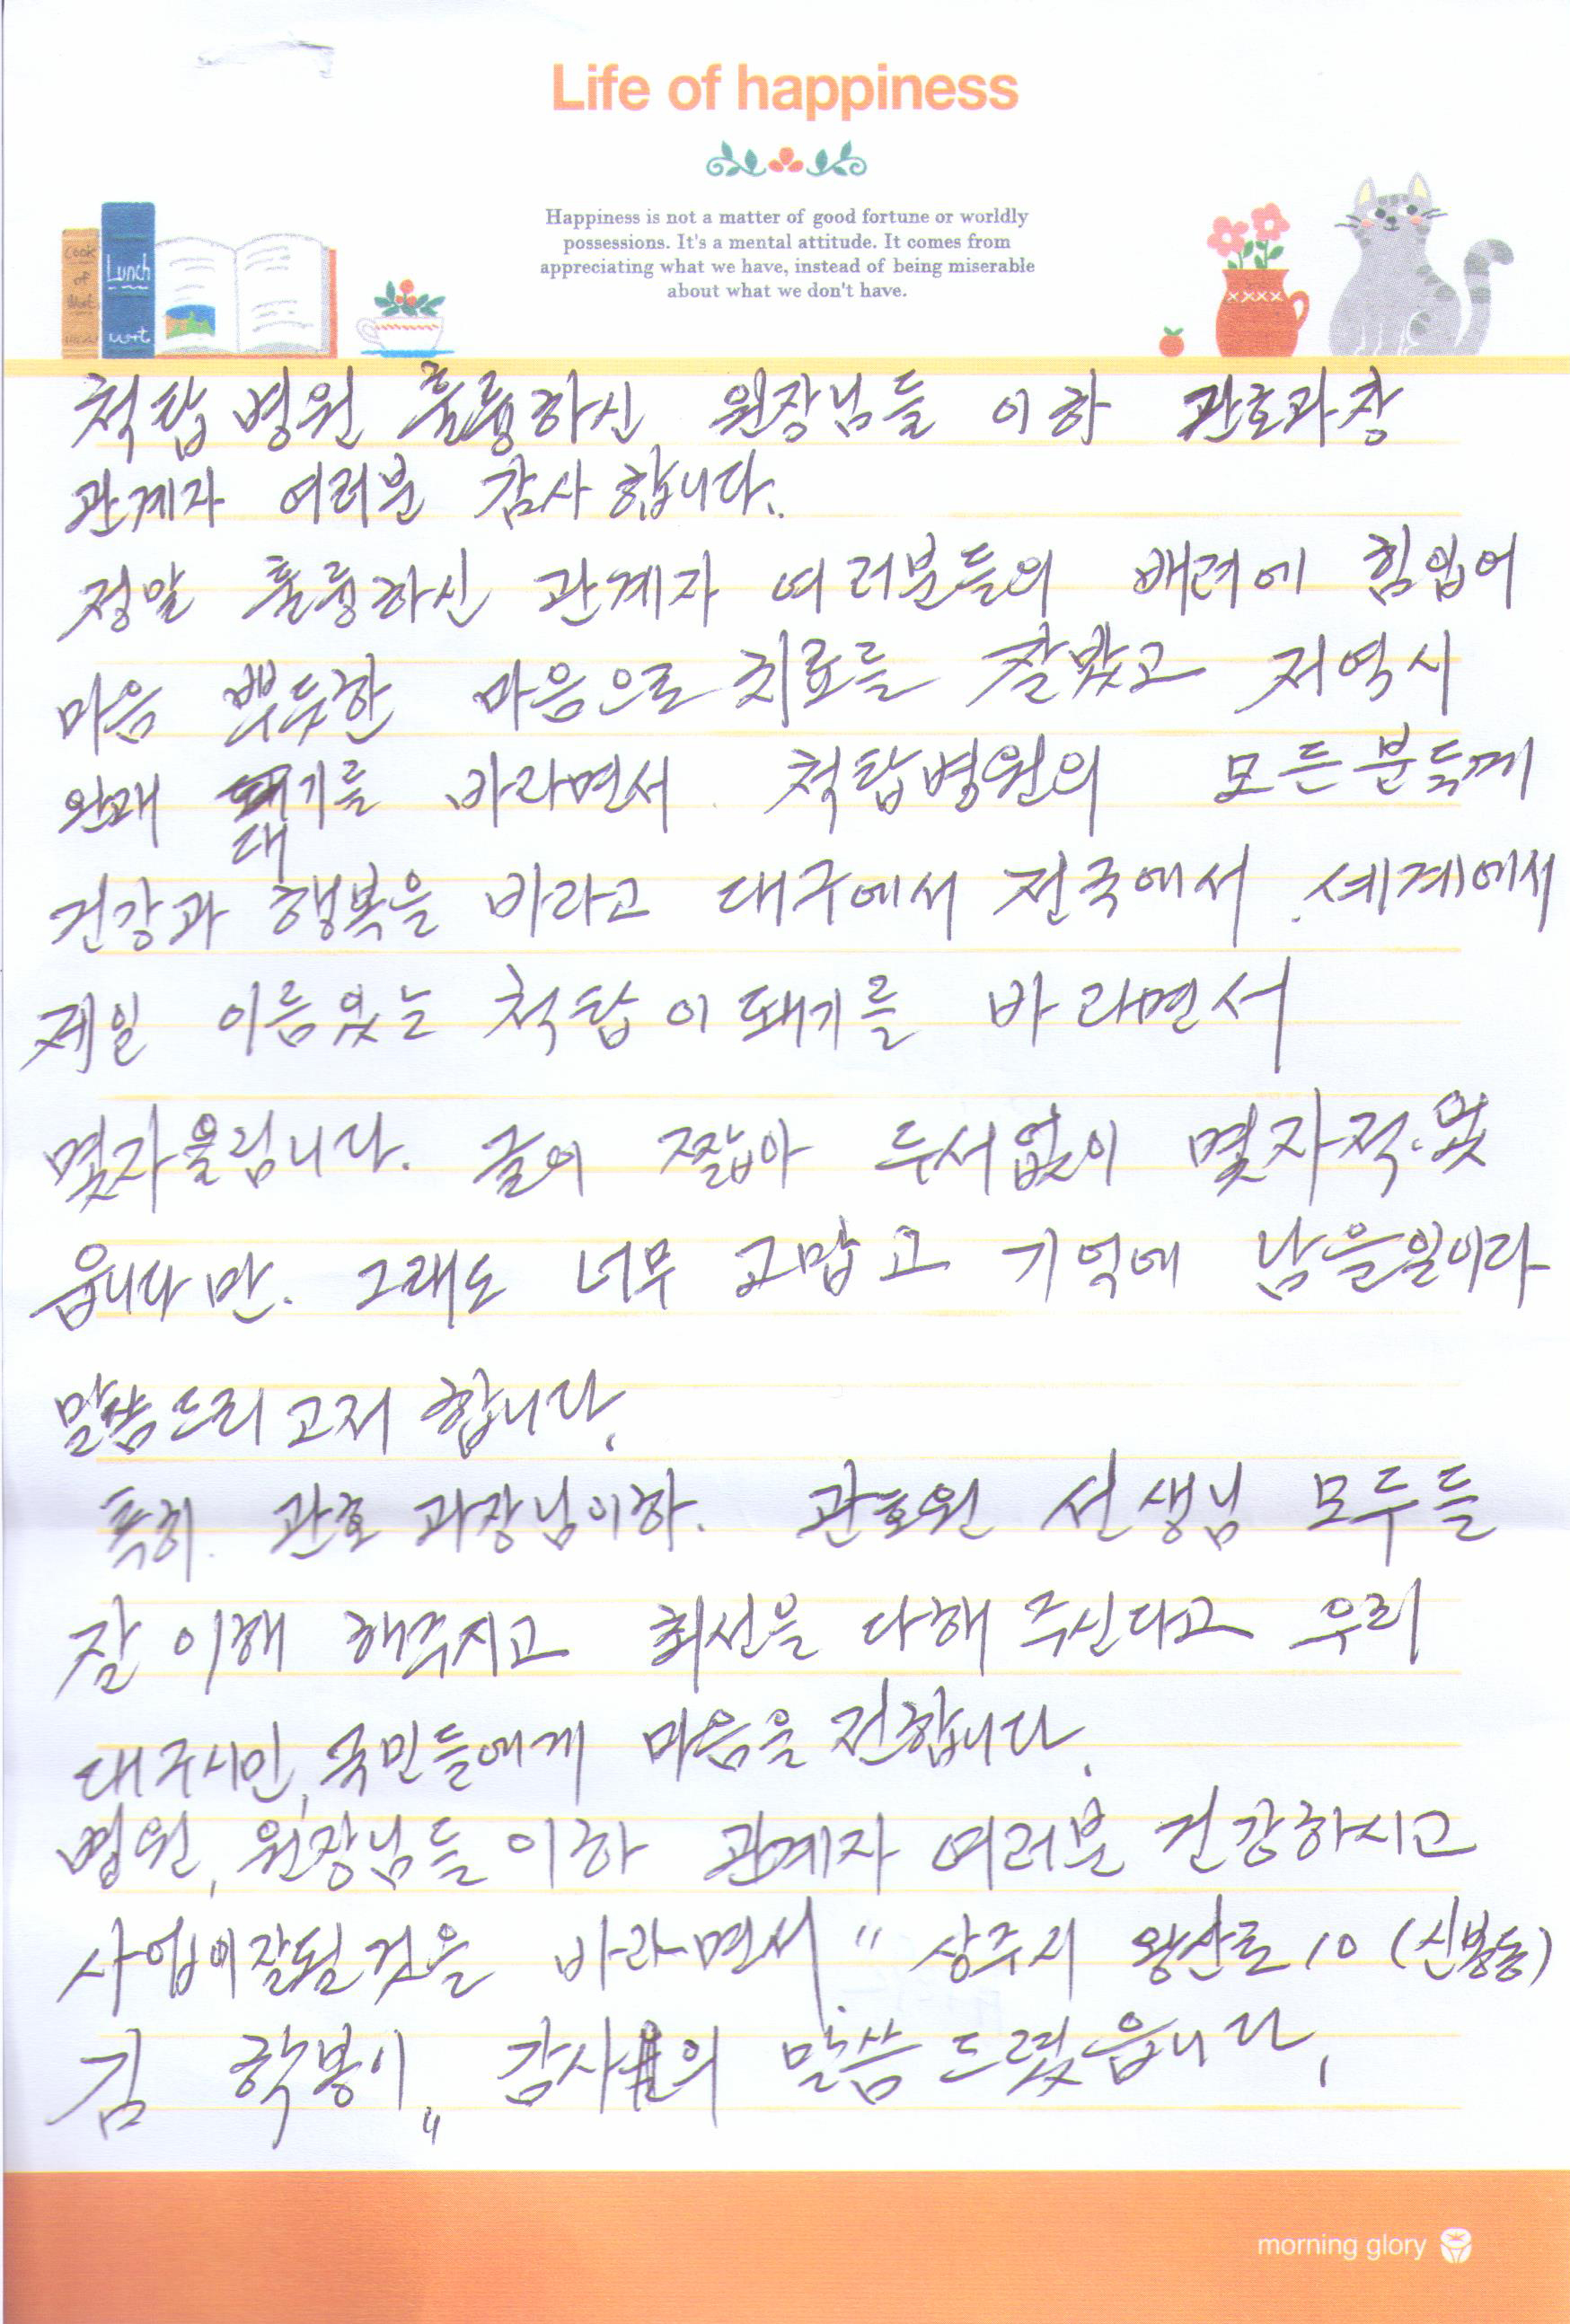 Life of happiness
Happiness is not a matter of good fortune or worldly
possessions. It's a mental attitude. It comes from
appreciating what we have, instead of being miserable
about what we don't have.
Cook
of
Lunch
척탑병원 훌륭하신, 원장님들 이하 관호과장
관계자 여러분 감사합니다.
정말 훌륭하신 관계자 여러분들의 배려에 힘입어
마음 뿌듯한 마음으로 치료를 잘받고 저역시
완쾌 돼기를 바라면서. 척탑병원의 모든분들께
건강과 행복을 바라고 대구에서 전국에서. 세계에서
제일 이름있는 척탑이 돼기를 바라면서
몇자올림니다. 글이 짧아 두서없이 몇자적.었
읍니다만. 그래도 너무 고맙고 기억에 남을일이라
말씀드리고저 합니다.
특히. 관호과장님이하. 관호원 선생님 모두들
잘 이해 해주시고 최선을 다해 주신다고 우리
대구시민, 국민들에게 마음을 전합니다.
병원, 원장님들 이하 관계자 여러분 건강하시고
사업이잘됨것을 바라면서. " 상주시 왕산로 10 (신봉동)
김 학봉이" 감사의 말씀 드렸읍니다.
morning glory